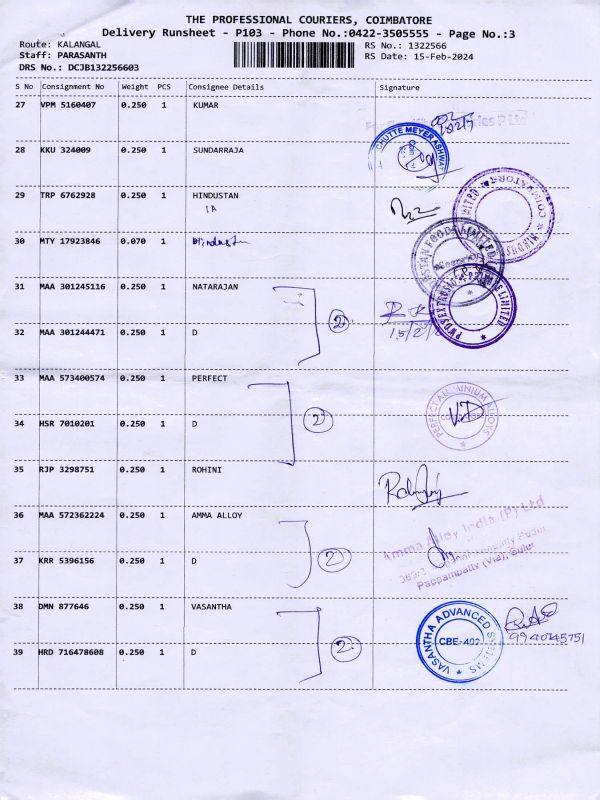 THE PROFESSIONAL COURIERS, COIMBATORE
Delivery Runsheet - P103 - Phone No.:0422-3505555 - Page No.:3
Route: KALANGAL RS No.: 1322566
Staff: PARASANTH RS Date: 15-Feb-2024
DRS No.: DCJB132256603
S No Consignment No Weight PCS Consignee Details Signature
27 VPM 5160407 0.250 1 KUMAR
CHUTTE MEYER
28 KKU 324009 0.250 1 SUNDARRAJA
29 TRP 6762928 0.250 1 HINDUSTAN
1A
30 MTY 17923846 0.070 1 Hindustan
FOODS LIMITED
31 MAA 301245116 0.250 1 NATARAJAN
2
15/2/
32 MAA 301244471 0.250 1 D
33 MAA 573400574 0.250 1 PERFECT
2
PERFECT ALUMINIUM ALLOYS
34 HSR 7010201 0.250 1 D
35 RJP 3298751 0.250 1 ROHINI
36 MAA 572362224 0.250 1 AMMA ALLOY
Amma Alloy India (P) Ltd
2
Pappampatty (Via), Sulur
37 KRR 5396156 0.250 1 D
38 DMN 877646 0.250 1 VASANTHA
VASANTHA ADVANCED SYSTEMS
CBE-402
2
9940145751
39 HRD 716478608 0.250 1 D